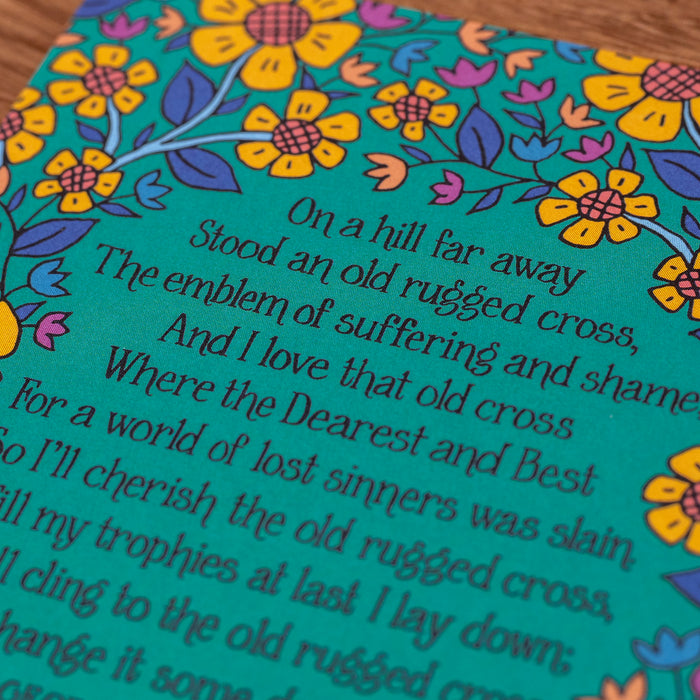 On a hill far away
Stood an old rugged cross,
The emblem of suffering and shame
And I love that old cross
Where the Dearest and Best
For a world of lost sinners was slain.
So I'll cherish the old rugged cross,
Till my trophies at last I lay down;
cling to the old rugged cross
change it some